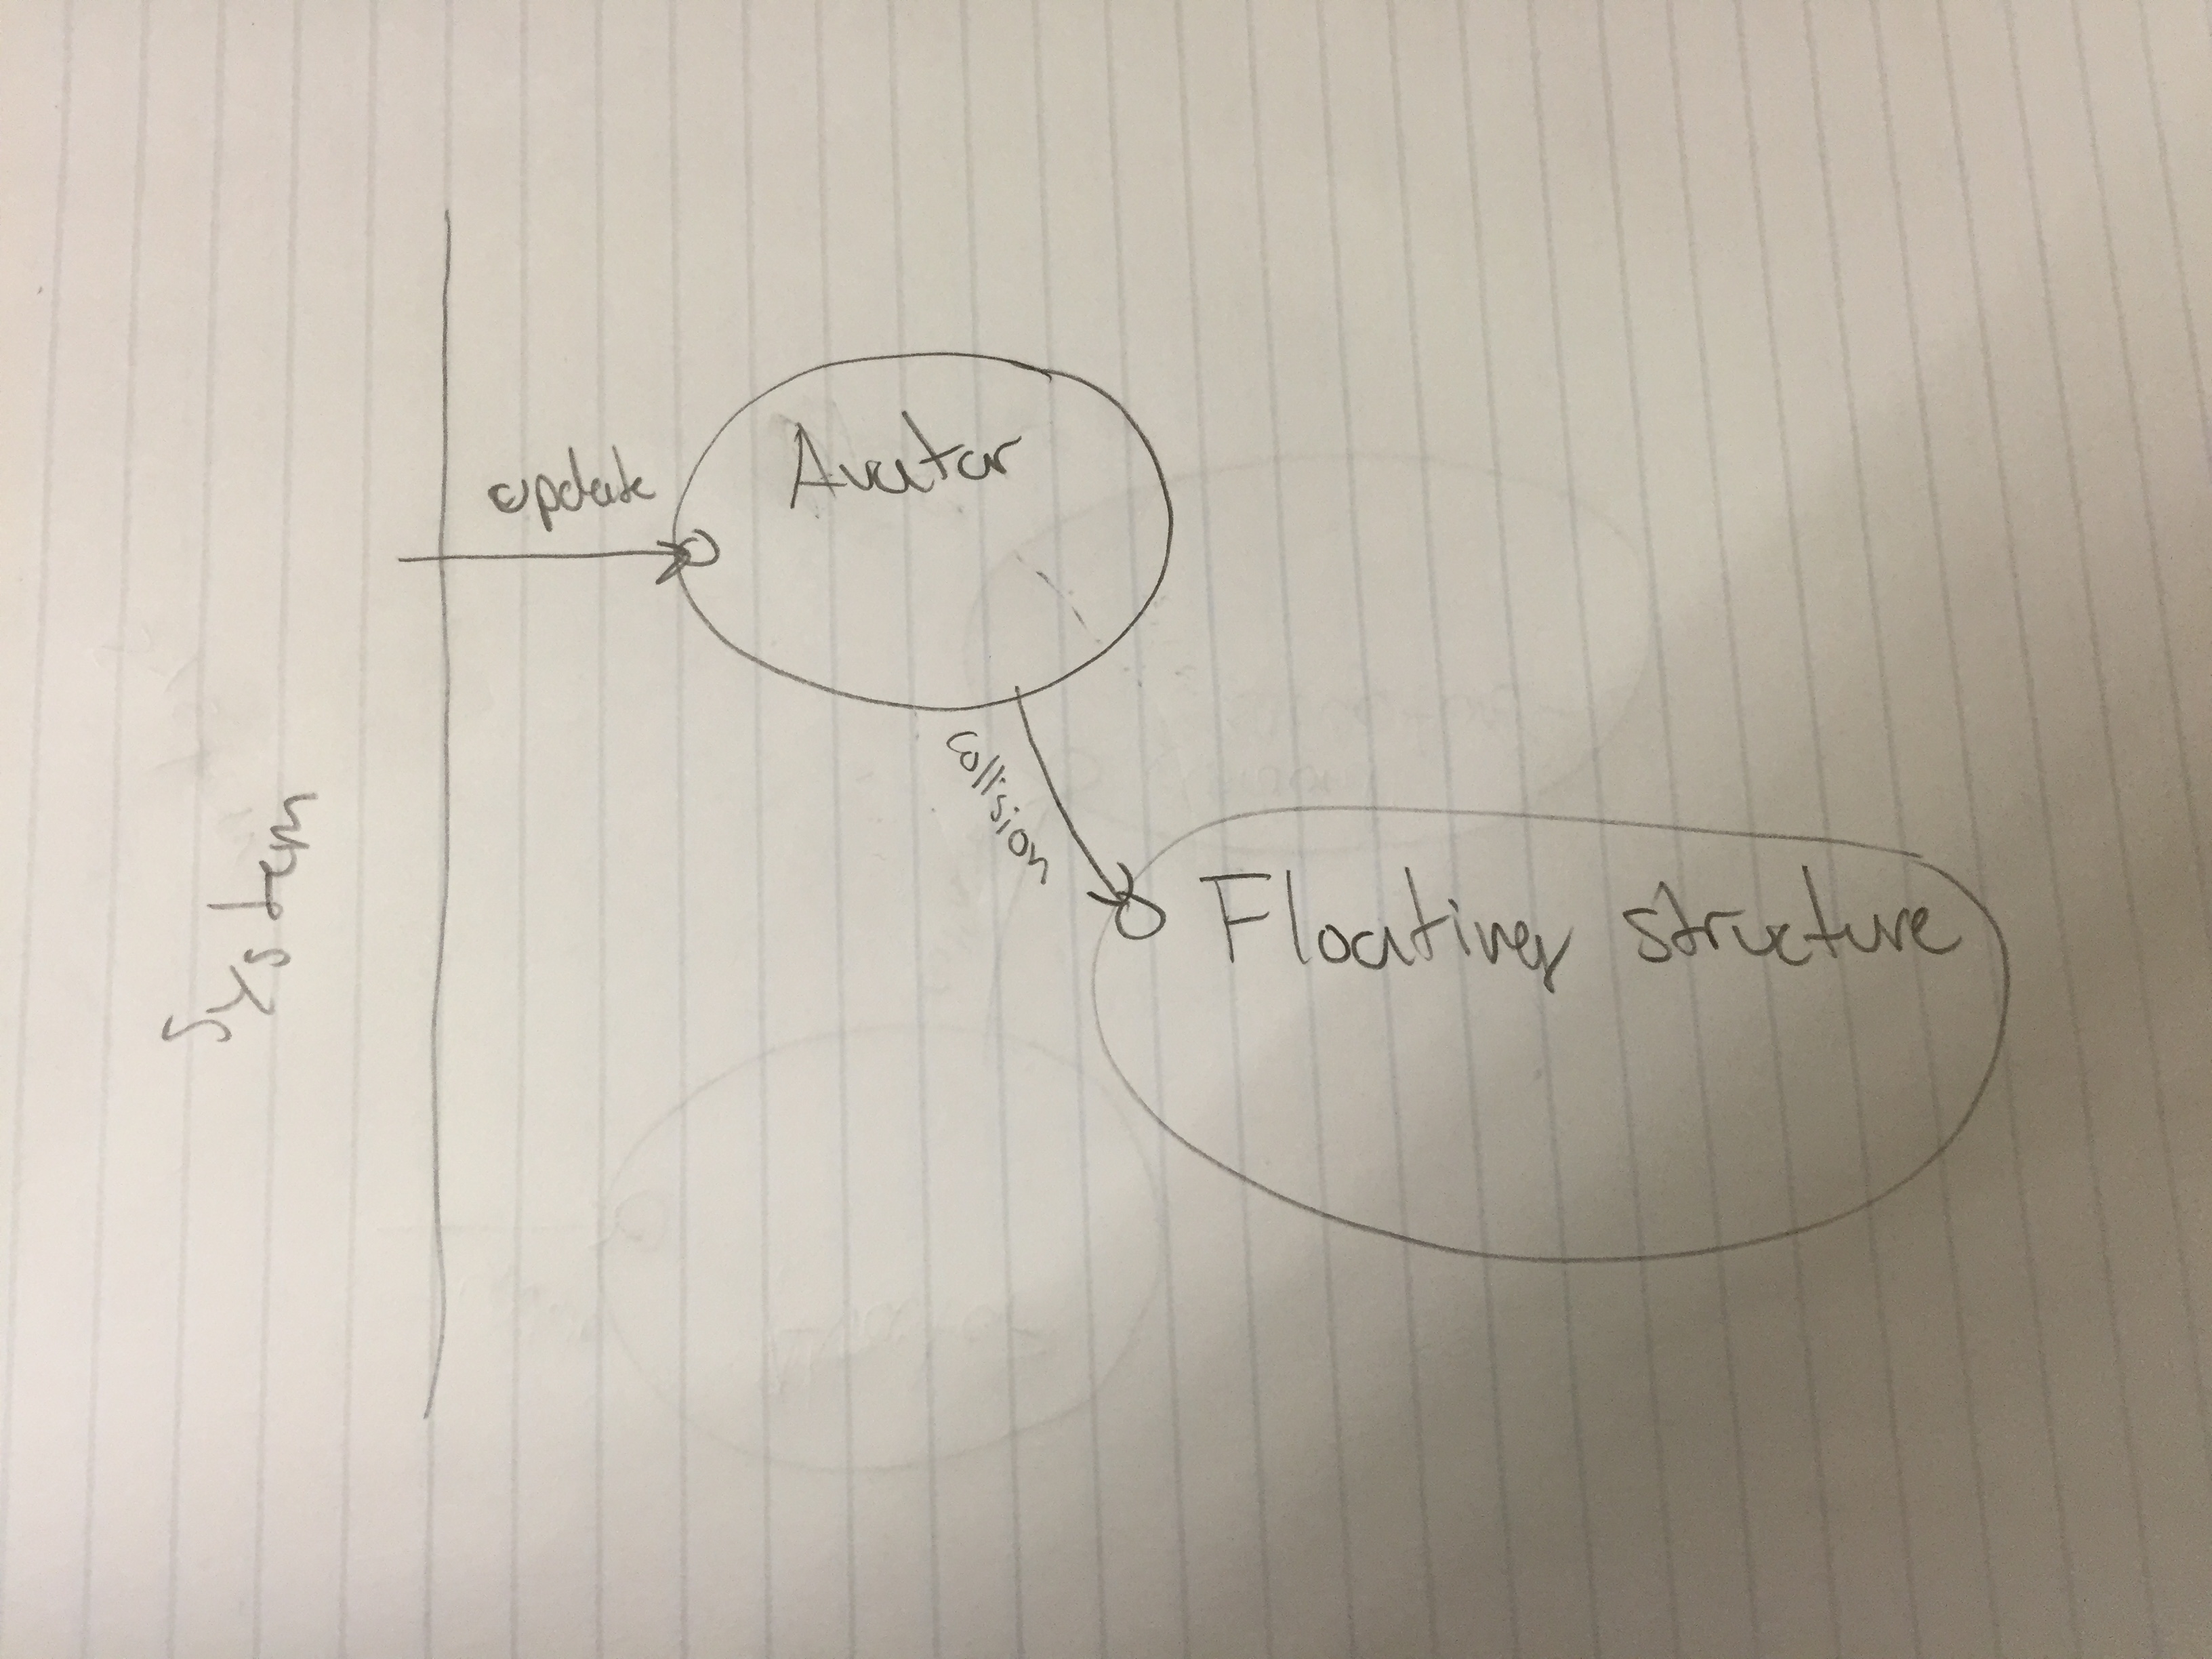 System
update
Avatar
collision
Floating structure